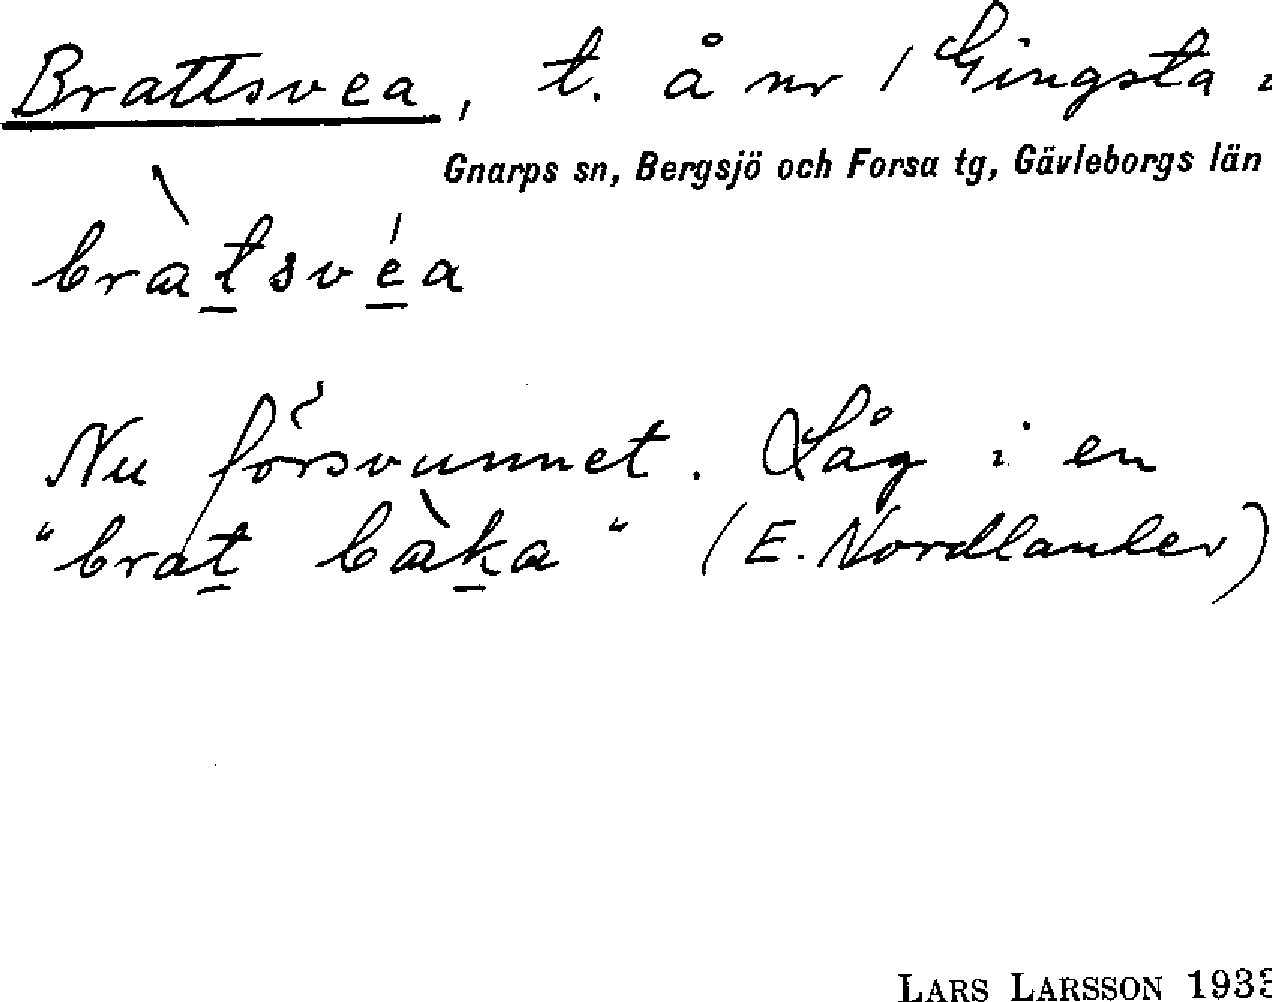 Brattsvea, t. å nr 1 Gingsta i
Gnarps sn, Bergsjö och Forsa tg, Gävleborgs län
bràtsvéa
Nu försvunnet. Låg i en
"brat bàka" (E. Nordlander)
LARS LARSSON 1935